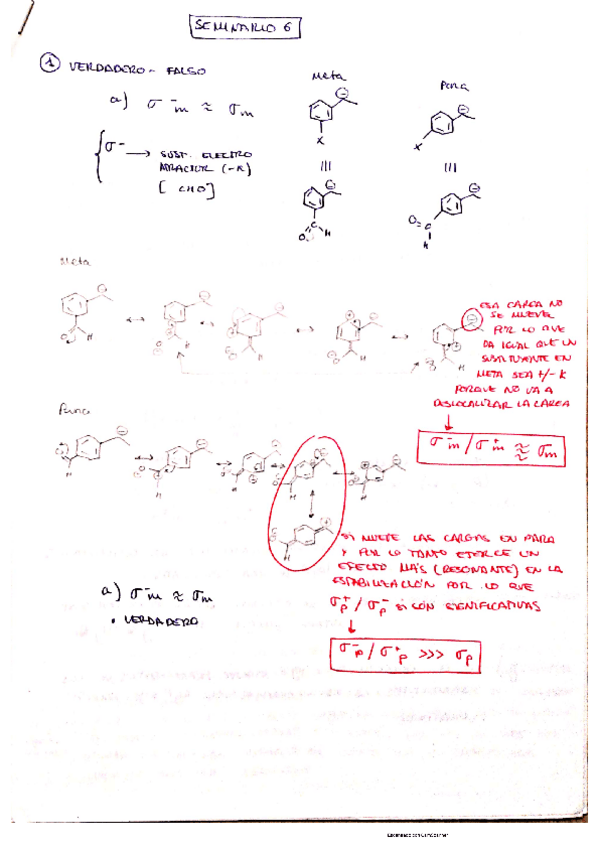 SEMINARIO 6
1 VERDADERO - FALSO
a) σ⁻m ≈ σm
σ⁻ → SUST. ELECTRO
ATRACTOR (-K)
[CHO]
Meta
Para
X
X
O
C
H
O
C
H
Meta
ESA CARGA NO
SE MUEVE
POR LO QUE
DA IGUAL QUE UN
SUSTITUYENTE EN
META SEA +/- K
PORQUE NO VA A
DESLOCALIZAR LA CARGA
σ⁻m / σ⁺m ≈ σm
Para
SI MUEVE LAS CARGAS EN PARA
Y POR LO TANTO EJERCE UN
EFECTO MÁS (RESONANTE) EN LA
ESTABILIZACIÓN POR LO QUE
σp⁺ / σp⁻ SI SON SIGNIFICATIVAS
σ⁻p / σ⁺p >>> σp
a) σ⁻m ≈ σm
• VERDADERO
Escaneado con CamScanner